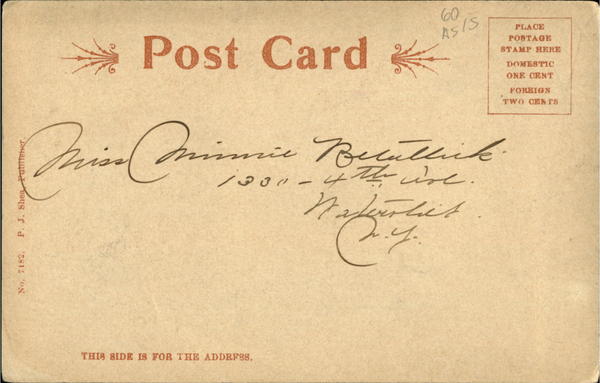 60
AS IS
Post Card
PLACE
POSTAGE
STAMP HERE
DOMESTIC
ONE CENT
FOREIGN
TWO CENTS
Miss Minnie
1330 - 4th Ave.
Watervliet
N.Y.
No. 7182. P. J. Shea, Publisher
THIS SIDE IS FOR THE ADDRESS.